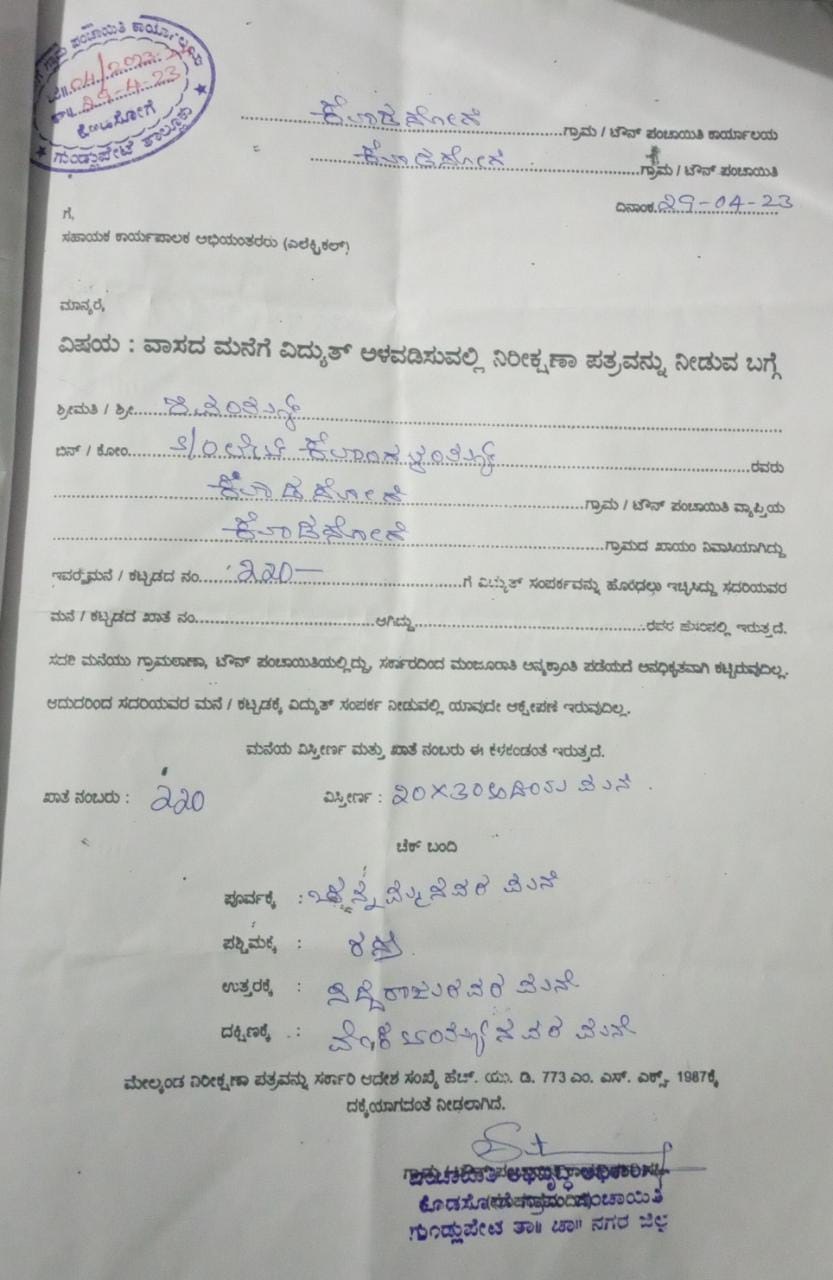 ಗ್ರಾಮ ಪಂಚಾಯಿತಿ ಕಾರ್ಯಾಲಯ
04/2023
ತಾ॥ 29-4-23
ಕೊಡಸೋಗೆ
ಗುಂಡ್ಲುಪೇಟೆ ತಾಲ್ಲೂಕು
ಕೊಡಸೋಗೆ ಗ್ರಾಮ / ಟೌನ್ ಪಂಚಾಯಿತಿ ಕಾರ್ಯಾಲಯ
ಕೊಡಸೋಗೆ ಗ್ರಾಮ / ಟೌನ್ ಪಂಚಾಯಿತಿ
ದಿನಾಂಕ 29-04-23
ಗೆ,
ಸಹಾಯಕ ಕಾರ್ಯಪಾಲಕ ಅಭಿಯಂತರರು (ಎಲೆಕ್ಟ್ರಿಕಲ್)
ಮಾನ್ಯರೆ,
ವಿಷಯ : ವಾಸದ ಮನೆಗೆ ವಿದ್ಯುತ್ ಅಳವಡಿಸುವಲ್ಲಿ ನಿರೀಕ್ಷಣಾ ಪತ್ರವನ್ನು ನೀಡುವ ಬಗ್ಗೆ
ಶ್ರೀಮತಿ / ಶ್ರೀ
ಬಿನ್ / ಕೋಂ ರವರು
ಕೊಡಸೋಗೆ ಗ್ರಾಮ / ಟೌನ್ ಪಂಚಾಯಿತಿ ವ್ಯಾಪ್ತಿಯ
ಕೊಡಸೋಗೆ ಗ್ರಾಮದ ಖಾಯಂ ನಿವಾಸಿಯಾಗಿದ್ದು
ಇವರ ಮನೆ / ಕಟ್ಟಡದ ನಂ. 220 ಗೆ ವಿದ್ಯುತ್ ಸಂಪರ್ಕವನ್ನು ಹೊಂದಲು ಇಚ್ಛಿಸಿದ್ದು ಸದರಿಯವರ
ಮನೆ / ಕಟ್ಟಡದ ಖಾತೆ ನಂ. ಆಗಿದ್ದು, ರವರ ಹೆಸರಿನಲ್ಲಿ ಇರುತ್ತದೆ.
ಸದರಿ ಮನೆಯು ಗ್ರಾಮಠಾಣಾ, ಟೌನ್ ಪಂಚಾಯಿತಿಯಲ್ಲಿದ್ದು, ಸರ್ಕಾರದಿಂದ ಮಂಜೂರಾತಿ ಅನ್ಯಕ್ರಾಂತಿ ಪಡೆಯದೆ ಅನಧಿಕೃತವಾಗಿ ಕಟ್ಟಿರುವುದಿಲ್ಲ.
ಆದುದರಿಂದ ಸದರಿಯವರ ಮನೆ / ಕಟ್ಟಡಕ್ಕೆ ವಿದ್ಯುತ್ ಸಂಪರ್ಕ ನೀಡುವಲ್ಲಿ ಯಾವುದೇ ಆಕ್ಷೇಪಣೆ ಇರುವುದಿಲ್ಲ.
ಮನೆಯ ವಿಸ್ತೀರ್ಣ ಮತ್ತು ಖಾತೆ ನಂಬರು ಈ ಕೆಳಕಂಡಂತೆ ಇರುತ್ತದೆ.
ಖಾತೆ ನಂಬರು : 220 ವಿಸ್ತೀರ್ಣ : 20X30 ಮನೆ
ಚೆಕ್ ಬಂದಿ
ಪೂರ್ವಕ್ಕೆ : ಮನೆ
ಪಶ್ಚಿಮಕ್ಕೆ : ರಸ್ತೆ
ಉತ್ತರಕ್ಕೆ : ಸಿದ್ದರಾಜುರವರ ಮನೆ
ದಕ್ಷಿಣಕ್ಕೆ : ಮನೆ
ಮೇಲ್ಕಂಡ ನಿರೀಕ್ಷಣಾ ಪತ್ರವನ್ನು ಸರ್ಕಾರಿ ಆದೇಶ ಸಂಖ್ಯೆ ಹೆಚ್. ಯು. ಡಿ. 773 ಎಂ. ಎಸ್. ಎಕ್ಸ್. 1987ಕ್ಕೆ
ದಕ್ಕೆಯಾಗದಂತೆ ನೀಡಲಾಗಿದೆ.
ಪಂಚಾಯಿತಿ ಅಭಿವೃದ್ಧಿ ಅಧಿಕಾರಿ
ಕೊಡಸೋಗೆ ಗ್ರಾಮ ಪಂಚಾಯಿತಿ
ಗುಂಡ್ಲುಪೇಟೆ ತಾ॥ ಚಾ॥ ನಗರ ಜಿಲ್ಲೆ